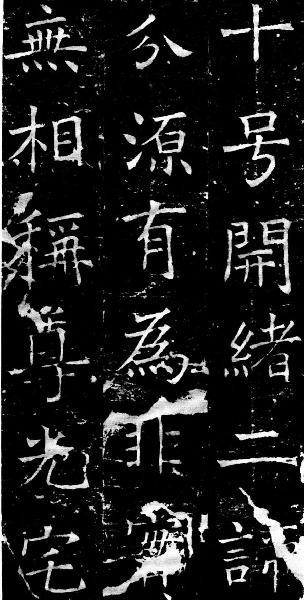 十号開緒二諦
分源有為非實
無相稱尊光宅